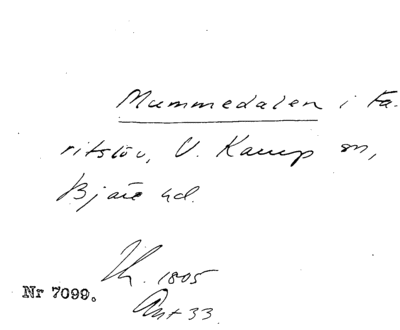 Mummedalen i Fa-
ritslöv, V. Karup sn,
Bjäre hd.
1805
Nr 7099.
Ant 33